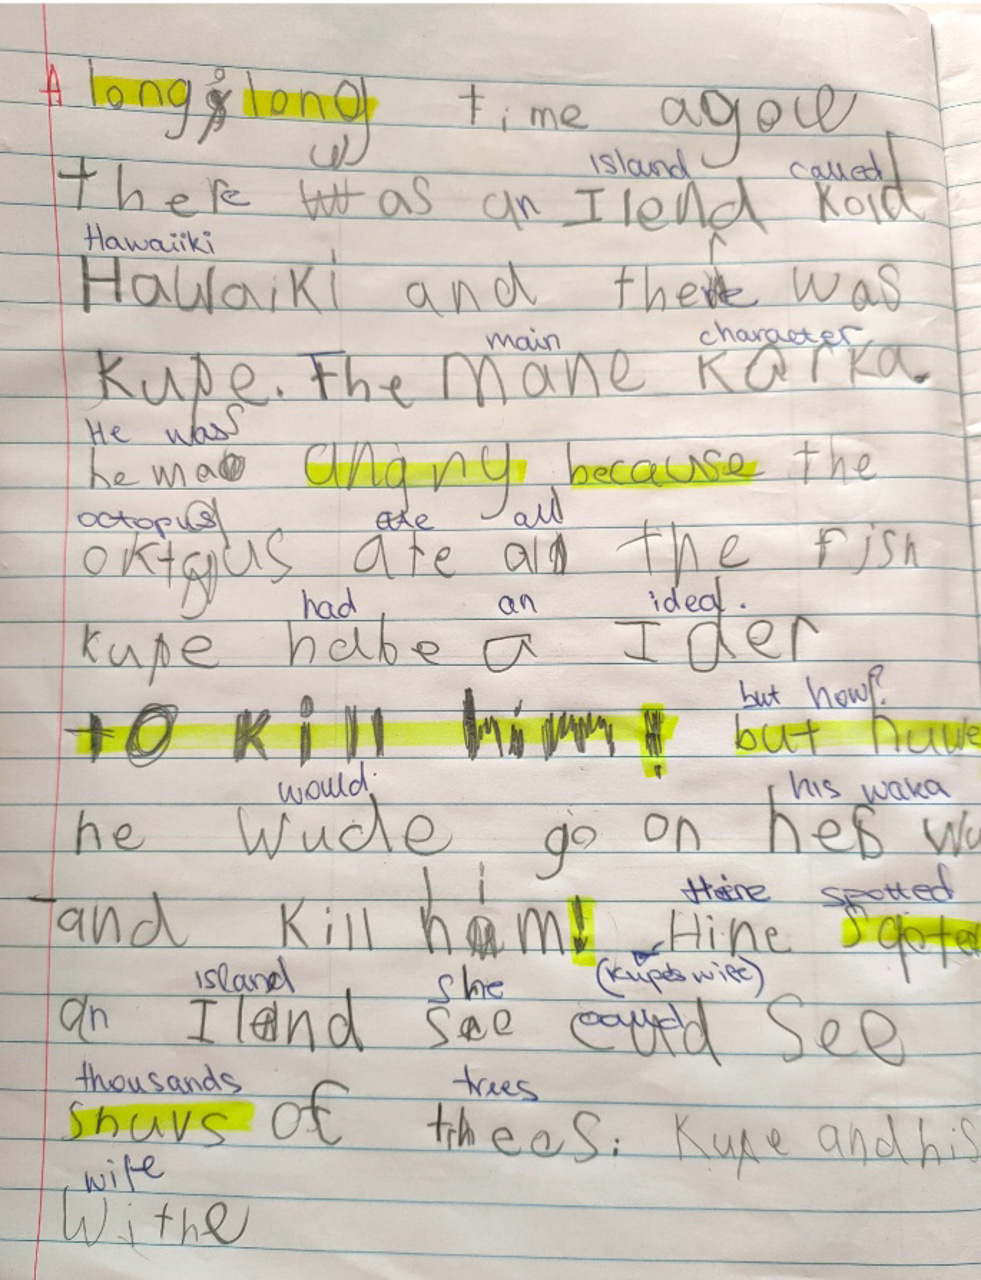 A long, long time agoe
island called
there was an Ilend Kold
Hawaiiki
Hawaiki and there was
main character
Kupe. The mane Karka.
He was
he mao angry because the
octopus ate all
oktopus ate all the fish
had an idea.
Kupe habe a Ider
but how?
to kill him! but huwe
would his waka
he wude go on hes wa
i
and kill ham! Hine spoted
Hine spotted
island she (Kupe's wife)
an Ilend see could see
thousands trees
shuvs of theeS. Kupe and his
wife
Withe